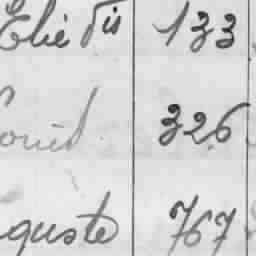 Elie fils 133
Louis 326
guste 767